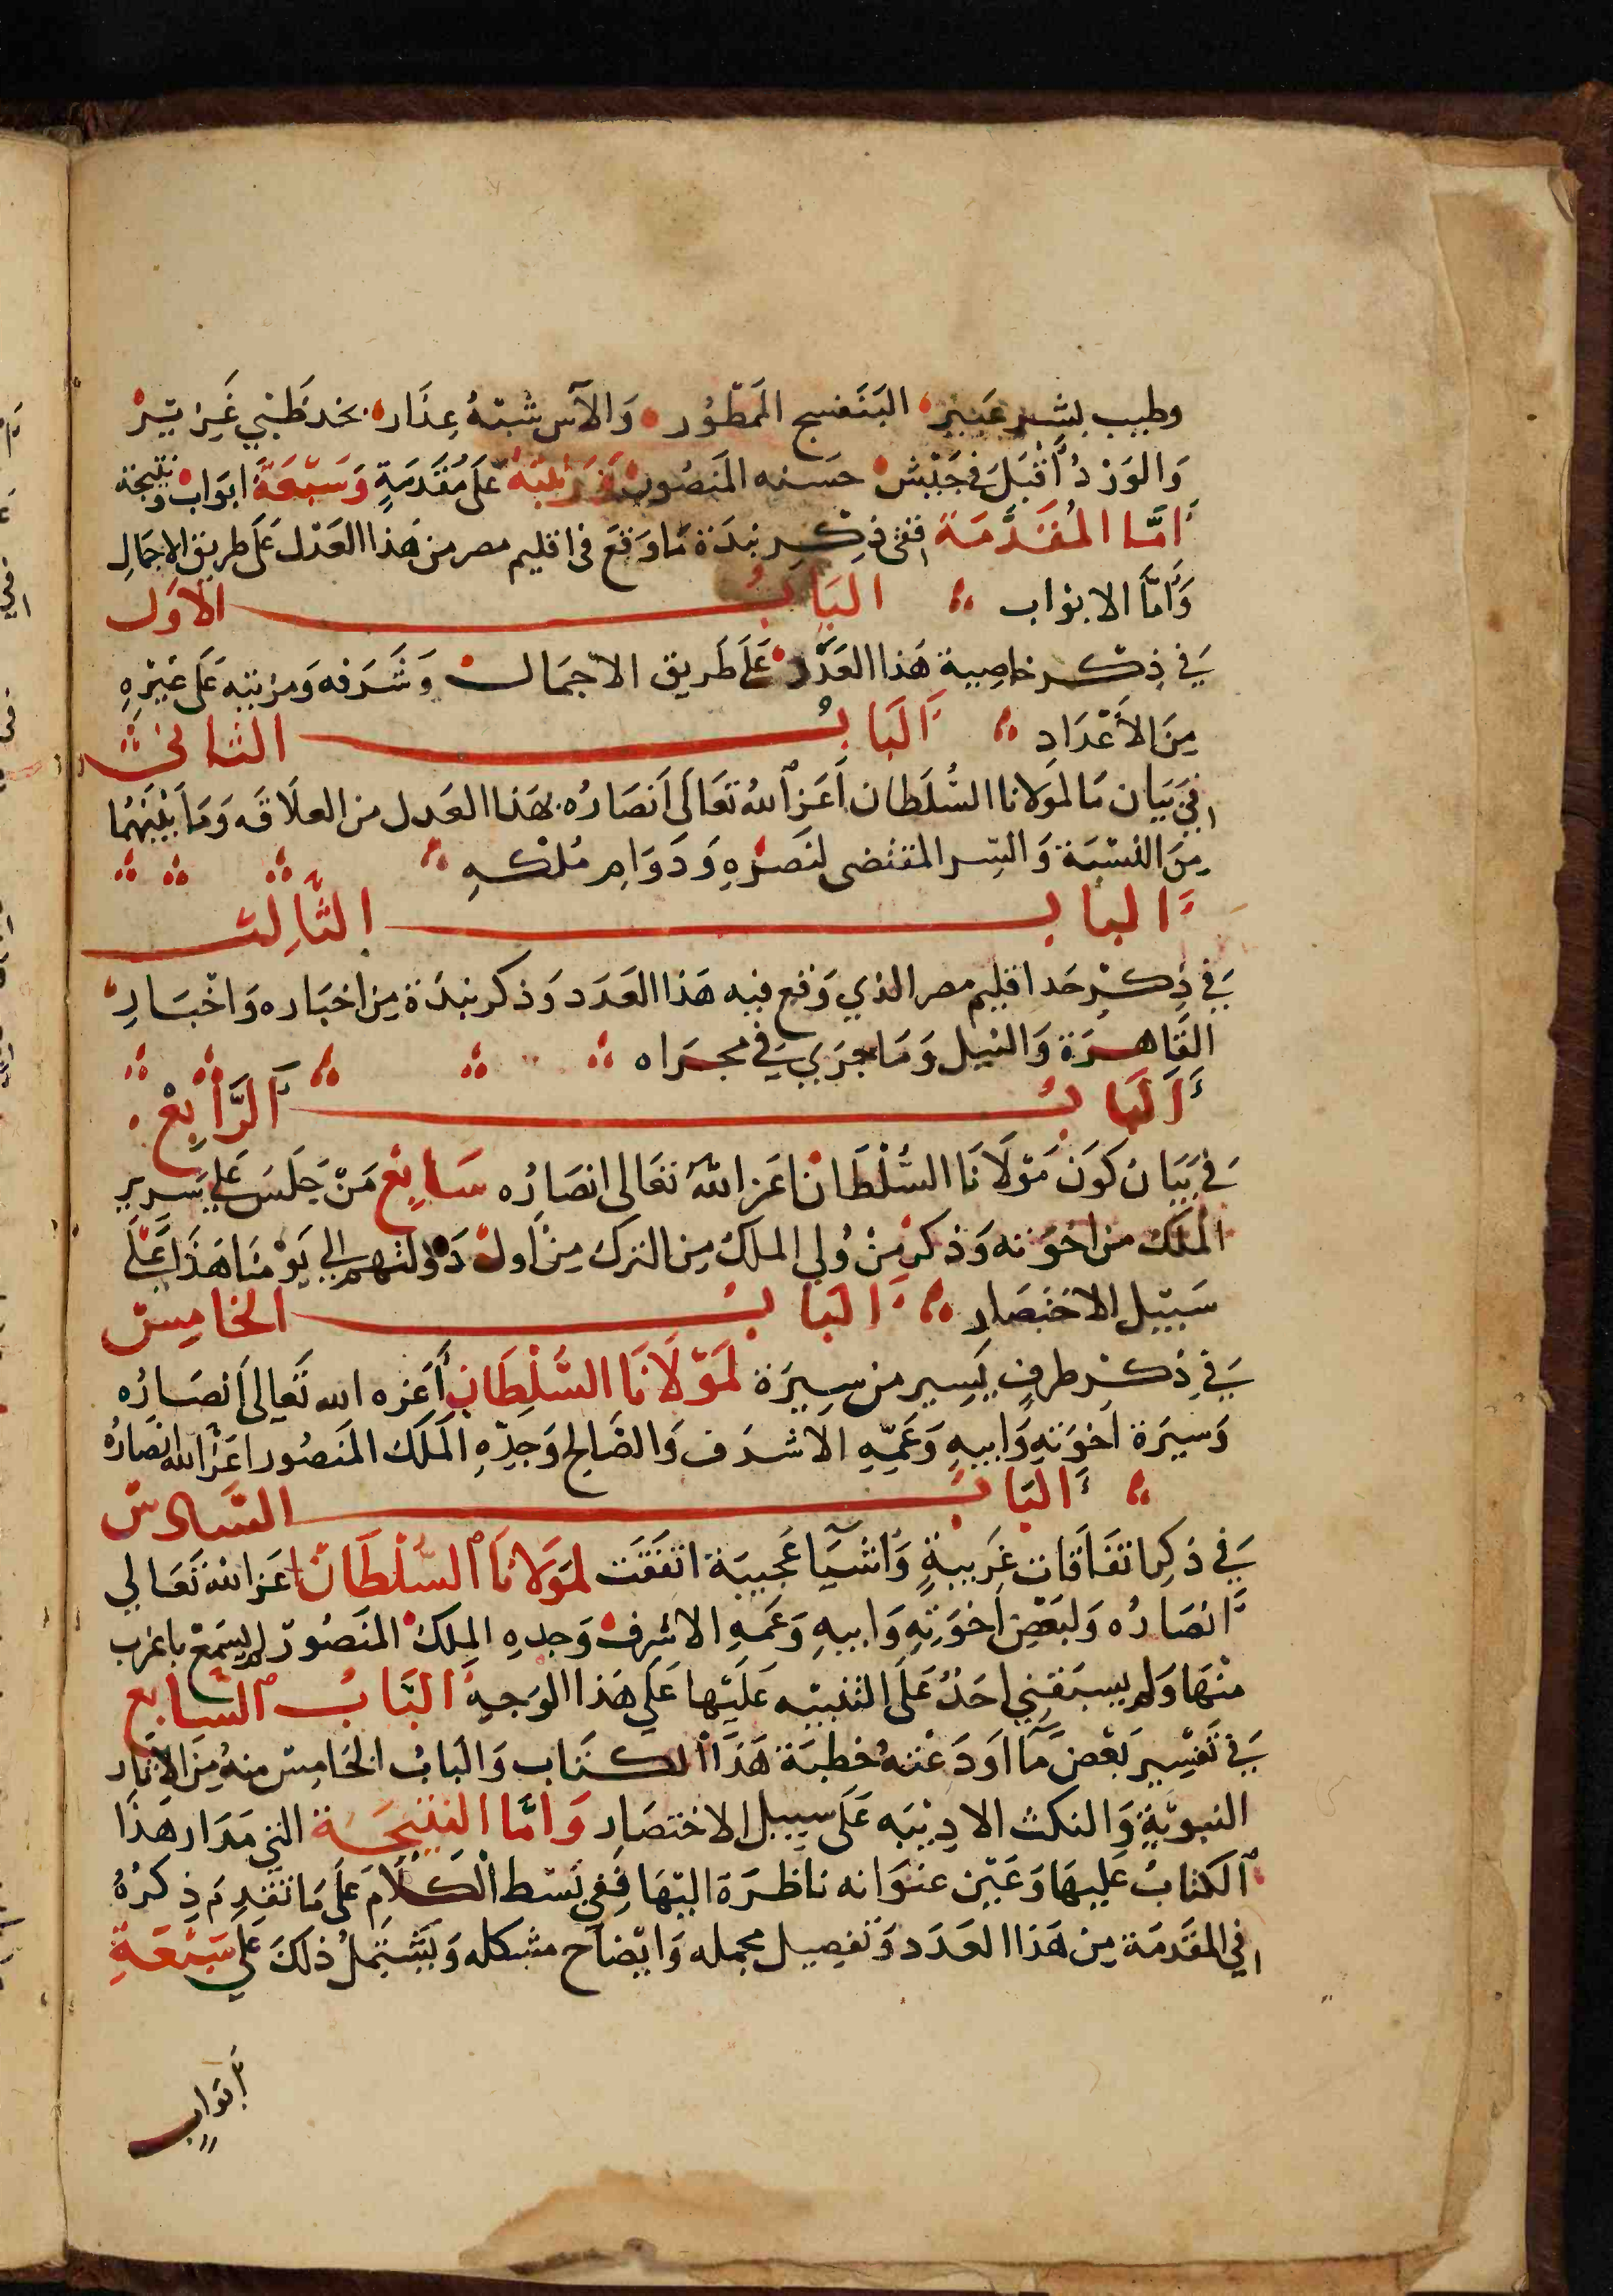 وطيب بشر عبير البنفسج الممطور والآس شبه عذار بخد ظبي غرير
والورد أقبل في جيش حسنه المنصور ورتبته على مقدمة وسبعة ابواب ونتيجة
أما المقدمة ففي ذكر نبذة مما وقع في اقليم مصر من هذا العدد على طريق الاجمال
وأما الابواب الباب الاول
في ذكر خاصية هذا العدد على طريق الاجمال وشرفه ومزيته على غيره
من الأعداد الباب الثاني
في بيان ما لمولانا السلطان أعز الله تعالى أنصاره بهذا العدد من العلاقه وما بينهما
من النسبة والسر المقتضى لنصره ودوام ملكه
الباب الثالث
في ذكر حد اقليم مصر الذي وقع فيه هذا العدد وذكر نبذة من اخباره واخبار
القاهرة والنيل وما جرى في مجراه
الباب الرابع
في بيان كون مولانا السلطان اعز الله تعالى انصاره سابع من جلس على سرير
الملك من اخوته وذكر من ولي الملك من الترك من أول دولتهم الى يومنا هذا على
سبيل الاختصار الباب الخامس
في ذكر طرف يسير من سيرة لمولانا السلطان أعزه الله تعالى أنصاره
وسيرة اخوته وابيه وعميه الاشرف والصالح وجده الملك المنصور اعز الله انصاره
الباب السادس
في ذكر اتفاقات غريبة وأشيآ عجيبة اتفقت لمولانا السلطان اعز الله تعالى
أنصاره ولبعض اخوته وابيه وعمه الاشرف وجده الملك المنصور لم يسمع باغرب
منها ولم يسبقني احد على التنبيه عليها على هذا الوجه الباب السابع
في تفسير بعض ما اودعته خطبة هذا الكتاب والباب الخامس منه من الآثار
النبوية والنكث الادبيه على سبيل الاختصار واما النتيجة التي مدار هذا
الكتاب عليها وعين عنوانه ناظرة اليها ففي بسط الكلام على ما تقدم ذكره
في المقدمة من هذا العدد وتفصيل مجمله وايضاح مشكله ويشتمل ذلك على سبعة
أبواب